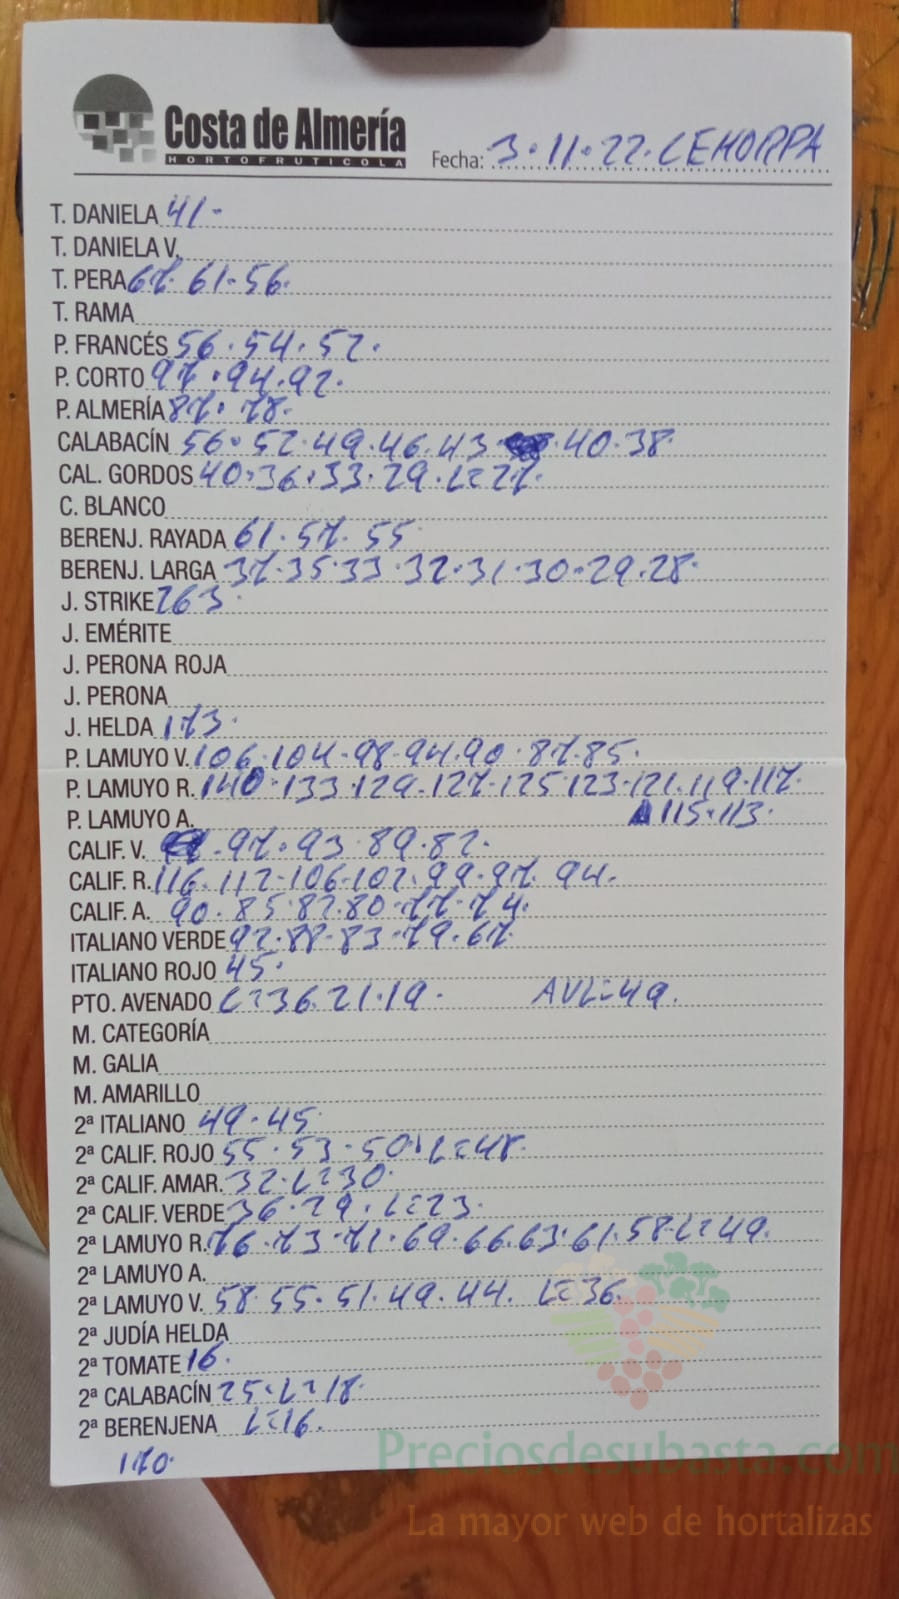 Costa de Almería
HORTOFRUTICOLA
Fecha: 3·11·22·CEHORPA
T. DANIELA 41-
T. DANIELA V.
T. PERA 67 61-56.
T. RAMA
P. FRANCÉS 56·54·52.
P. CORTO 97·94·92.
P. ALMERÍA 87· 78.
CALABACÍN 56·52·49·46·43· ·40·38
CAL. GORDOS 40·36·33·29·L=27.
C. BLANCO
BERENJ. RAYADA 61·57·55
BERENJ. LARGA 37·35·33·32·31·30·29·28·
J. STRIKE 263·
J. EMÉRITE
J. PERONA ROJA
J. PERONA
J. HELDA 173·
P. LAMUYO V. 106·104·98·94·90·87·85.
P. LAMUYO R. 140·133·129·127·125·123·121·119·117.
P. LAMUYO A. 115·113.
CALIF. V. ·97·93·89·82.
CALIF. R. 116·112·106·102·99·97·94.
CALIF. A. 90·85·82·80·77·74.
ITALIANO VERDE 92·88·83·79·67.
ITALIANO ROJO 45·
PTO. AVENADO L=36·21·19· AVL=49.
M. CATEGORÍA
M. GALIA
M. AMARILLO
2ª ITALIANO 49·45
2ª CALIF. ROJO 55·53·50·L=48.
2ª CALIF. AMAR. 32·L=30·
2ª CALIF. VERDE 36·29·L=23·
2ª LAMUYO R. 76·73·71·69·66·63·61·58·L=49.
2ª LAMUYO A.
2ª LAMUYO V. 58·55·51·49·44. L=36.
2ª JUDÍA HELDA
2ª TOMATE 16.
2ª CALABACÍN 25·L=18·
2ª BERENJENA L=16.
170·
Preciosdesubasta.com
La mayor web de hortalizas